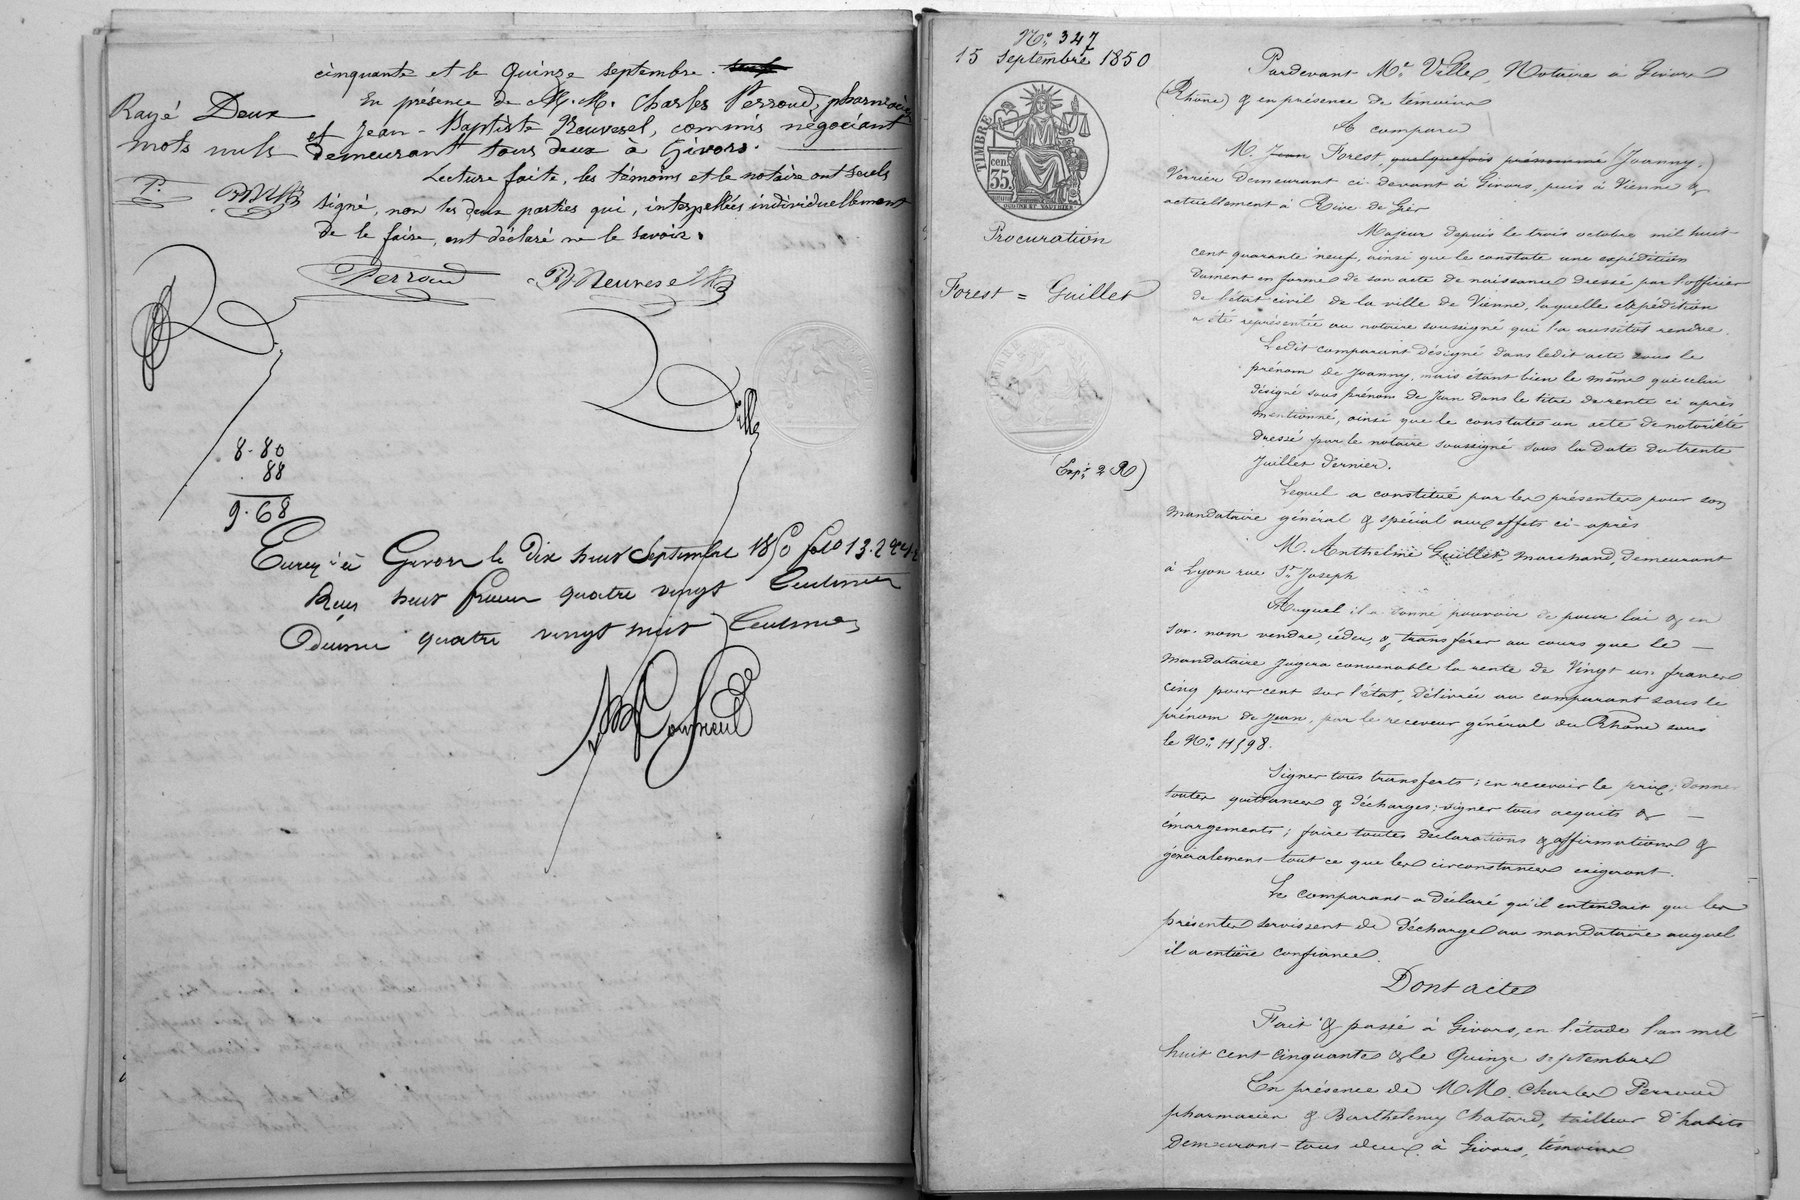 cinquante et le Quinze septembre.
En présence de M. M. Charles Perroud, pharmacien
et Jean-Baptiste Neuvesel, commis négociant
demeurant tous deux à Givors.
Rayé Deux
mots nuls
Lecture faite, les témoins et le notaire ont seuls
signé, non les deux parties qui, interpellées individuellement
de le faire, ont déclaré ne le savoir.
P.
Perroud
BNeuvesel
Ville
8.80
.88
9.68
Enreg. à Givors le Dix huit Septembre 1850 folo 13.
Reçu huit francs quatre vingt Centimes
Decime quatre vingt huit Centimes
No. 347
15 Septembre 1850
TIMBRE
cen.
35
Procuration
Forest = Guillet
(Exp. 2 R)
Pardevant Me. Ville, Notaire à Givors
(Rhône) & en présence de témoins
A comparu
M. Jean Forest, quelquefois prénommé (Joanny,)
Verrier demeurant ci-devant à Givors, puis à Vienne &
actuellement à Rive de Gier
Majeur depuis le trois octobre mil huit
cent quarante neuf, ainsi que le constate une expédition
dument en forme de son acte de naissance dressé par l'officier
de l'état civil de la ville de Vienne, laquelle expédition
a été représentée au notaire soussigné qui l'a aussitôt rendue.
Ledit comparant désigné dans ledit acte sous le
prénom de Joanny, mais étant bien le même que celui
désigné sous prénom de Jean dans le titre de rente ci après
mentionné, ainsi que le constate un acte de notoriété
dressé par le notaire soussigné sous la date du trente
Juillet dernier.
Lequel a constitué par les présentes pour son
mandataire général & spécial aux effets ci-après
M. Anthelme Guillet, marchand, demeurant
à Lyon rue St. Joseph
Auquel il a donné pouvoir de pour lui & en
son nom vendre, céder, & transférer au cours que le
mandataire jugera convenable la rente de Vingt un francs
cinq pour cent sur l'état, délivrée au comparant sous le
prénom de Jean, par le receveur général du Rhône sous
le No. 11598.
Signer tous transferts; en recevoir le prix; donner
toutes quittances & décharges; signer tous acquits &
émargements; faire toutes déclarations & affirmations &
généralement tout ce que les circonstances exigeront.
Le comparant a déclaré qu'il entendait que les
présentes servissent de décharge au mandataire auquel
il a entière confiance.
Dont acte
Fait & passé à Givors, en l'étude l'an mil
huit cent cinquante & le Quinze septembre
En présence de M.M. Charles Perroud
pharmacien & Barthelemy Chatard, tailleur d'habits
demeurant tous deux à Givors, témoins